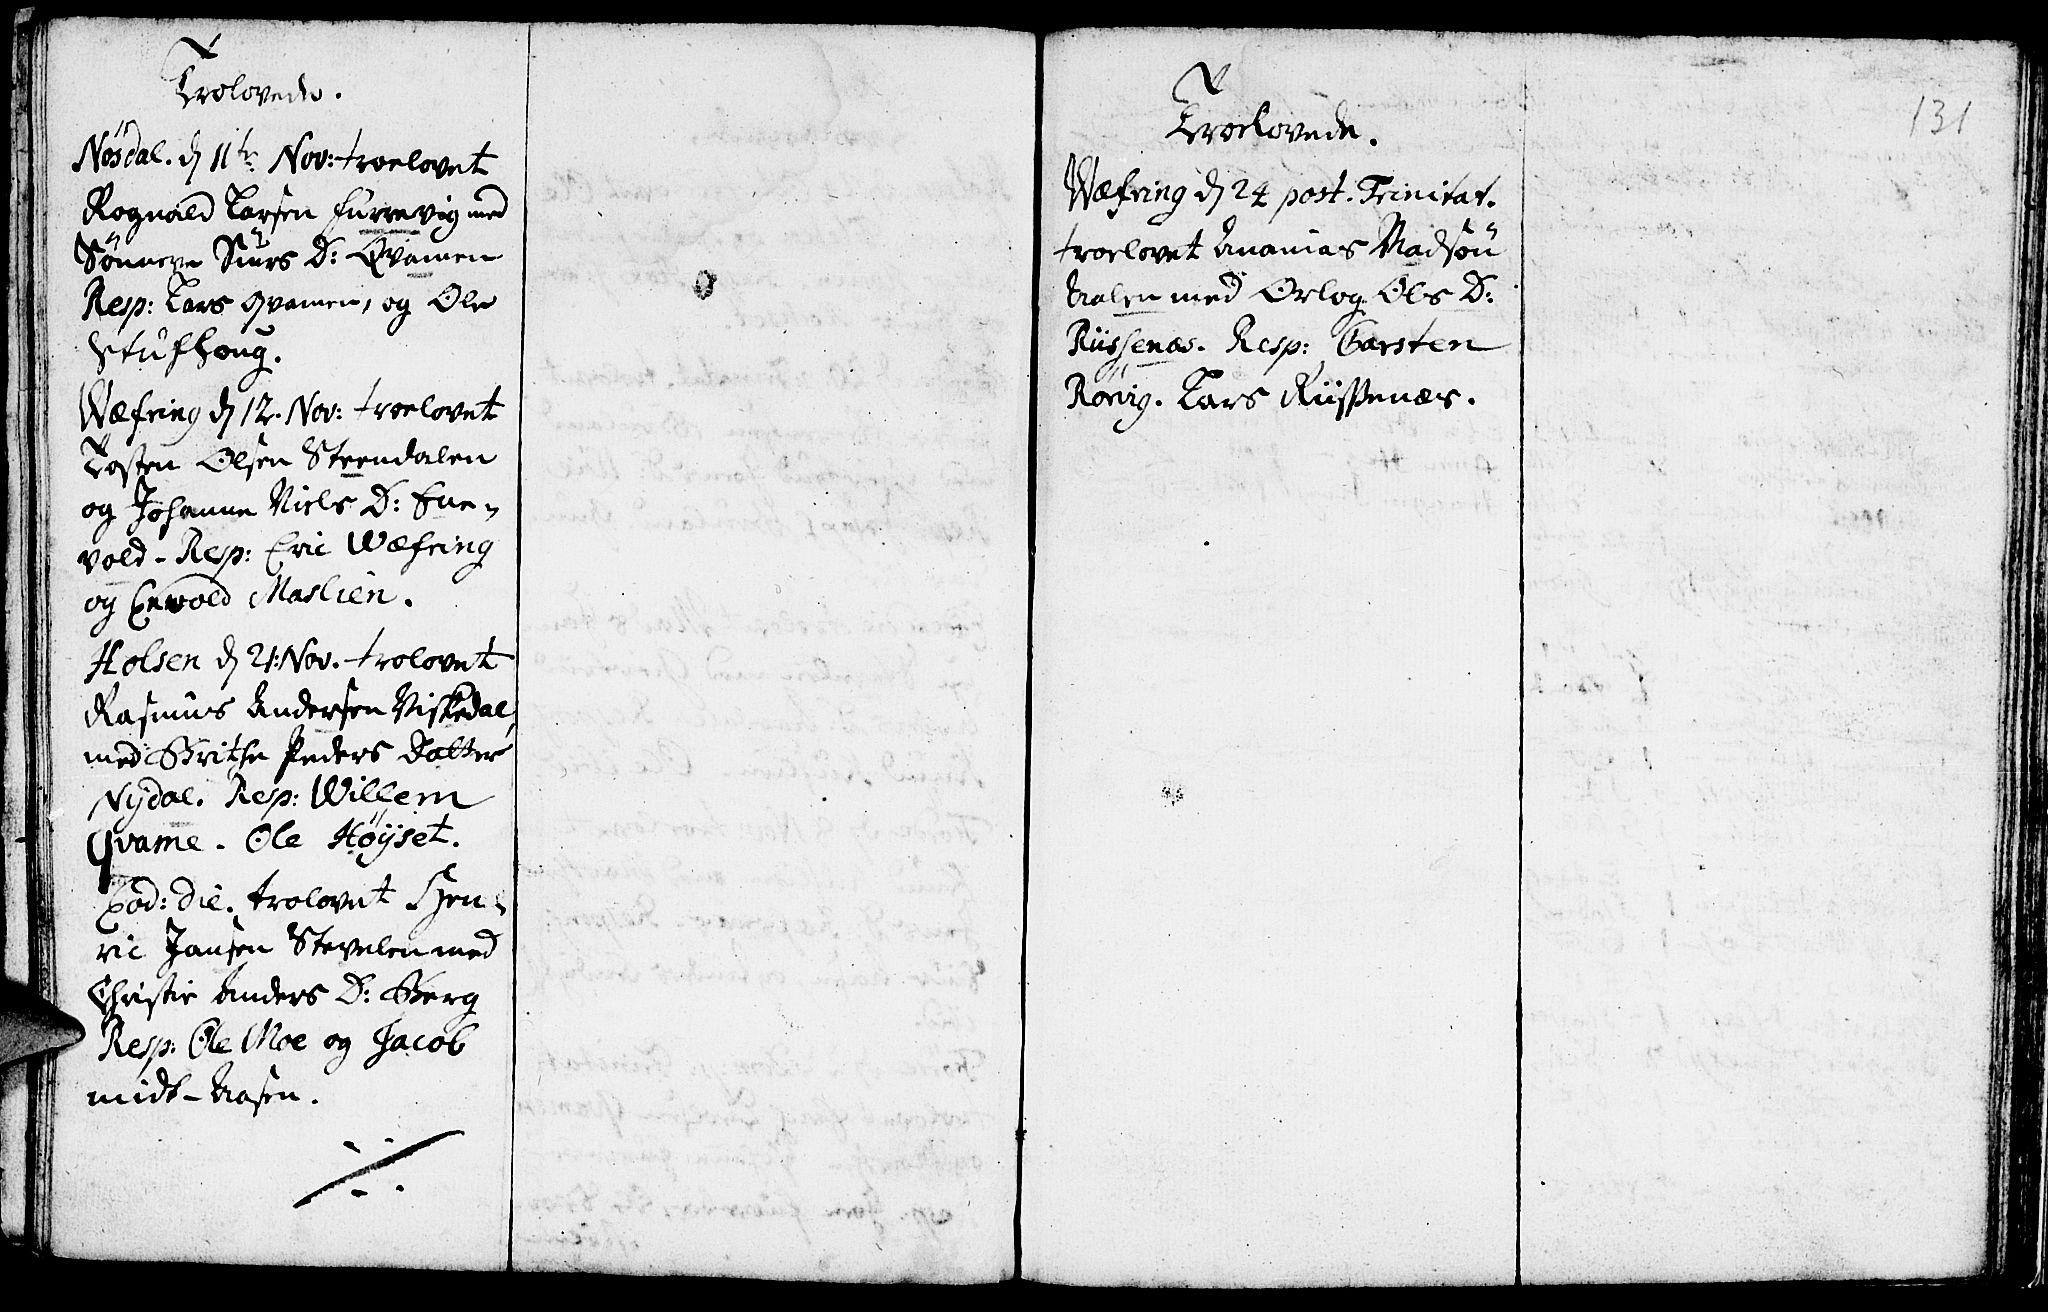 Trolovede.
Nösdal. d 11te Nov: troelovet
Rognald Larsen Furrevig med
Sönneve Siurs D: Qvamen
Resp: Lars Qvamen, og Ole
Stufhoug.
Wæfring d 12. Nov: troelovet
Tosten Olsen Steendalen
og Johanne Niels D: Ene-
vold - Resp: Eric Wæfring
og Enwold Maslien.
Holsen d 21. Nov. trolovet
Rasmus Andersen Viskedal,
med Brithe Peders Dotter
Nÿdal. Resp: Willem
Qvame - Ole Höÿset.
Eod: die. trolovet Hen-
ric Jansen Stevelen med
Christie Anders D: Berg
Resp: Ole Moe og Jacob
midt-Aasen.
Troelovede.
131
Wæfring d 24 post. Trinitat.
troelovet Ananias Madsön
Aalen med Orlog Ols D:
Riissenæs. Resp: Carsten
Rörvig. Lars Riissenæs.